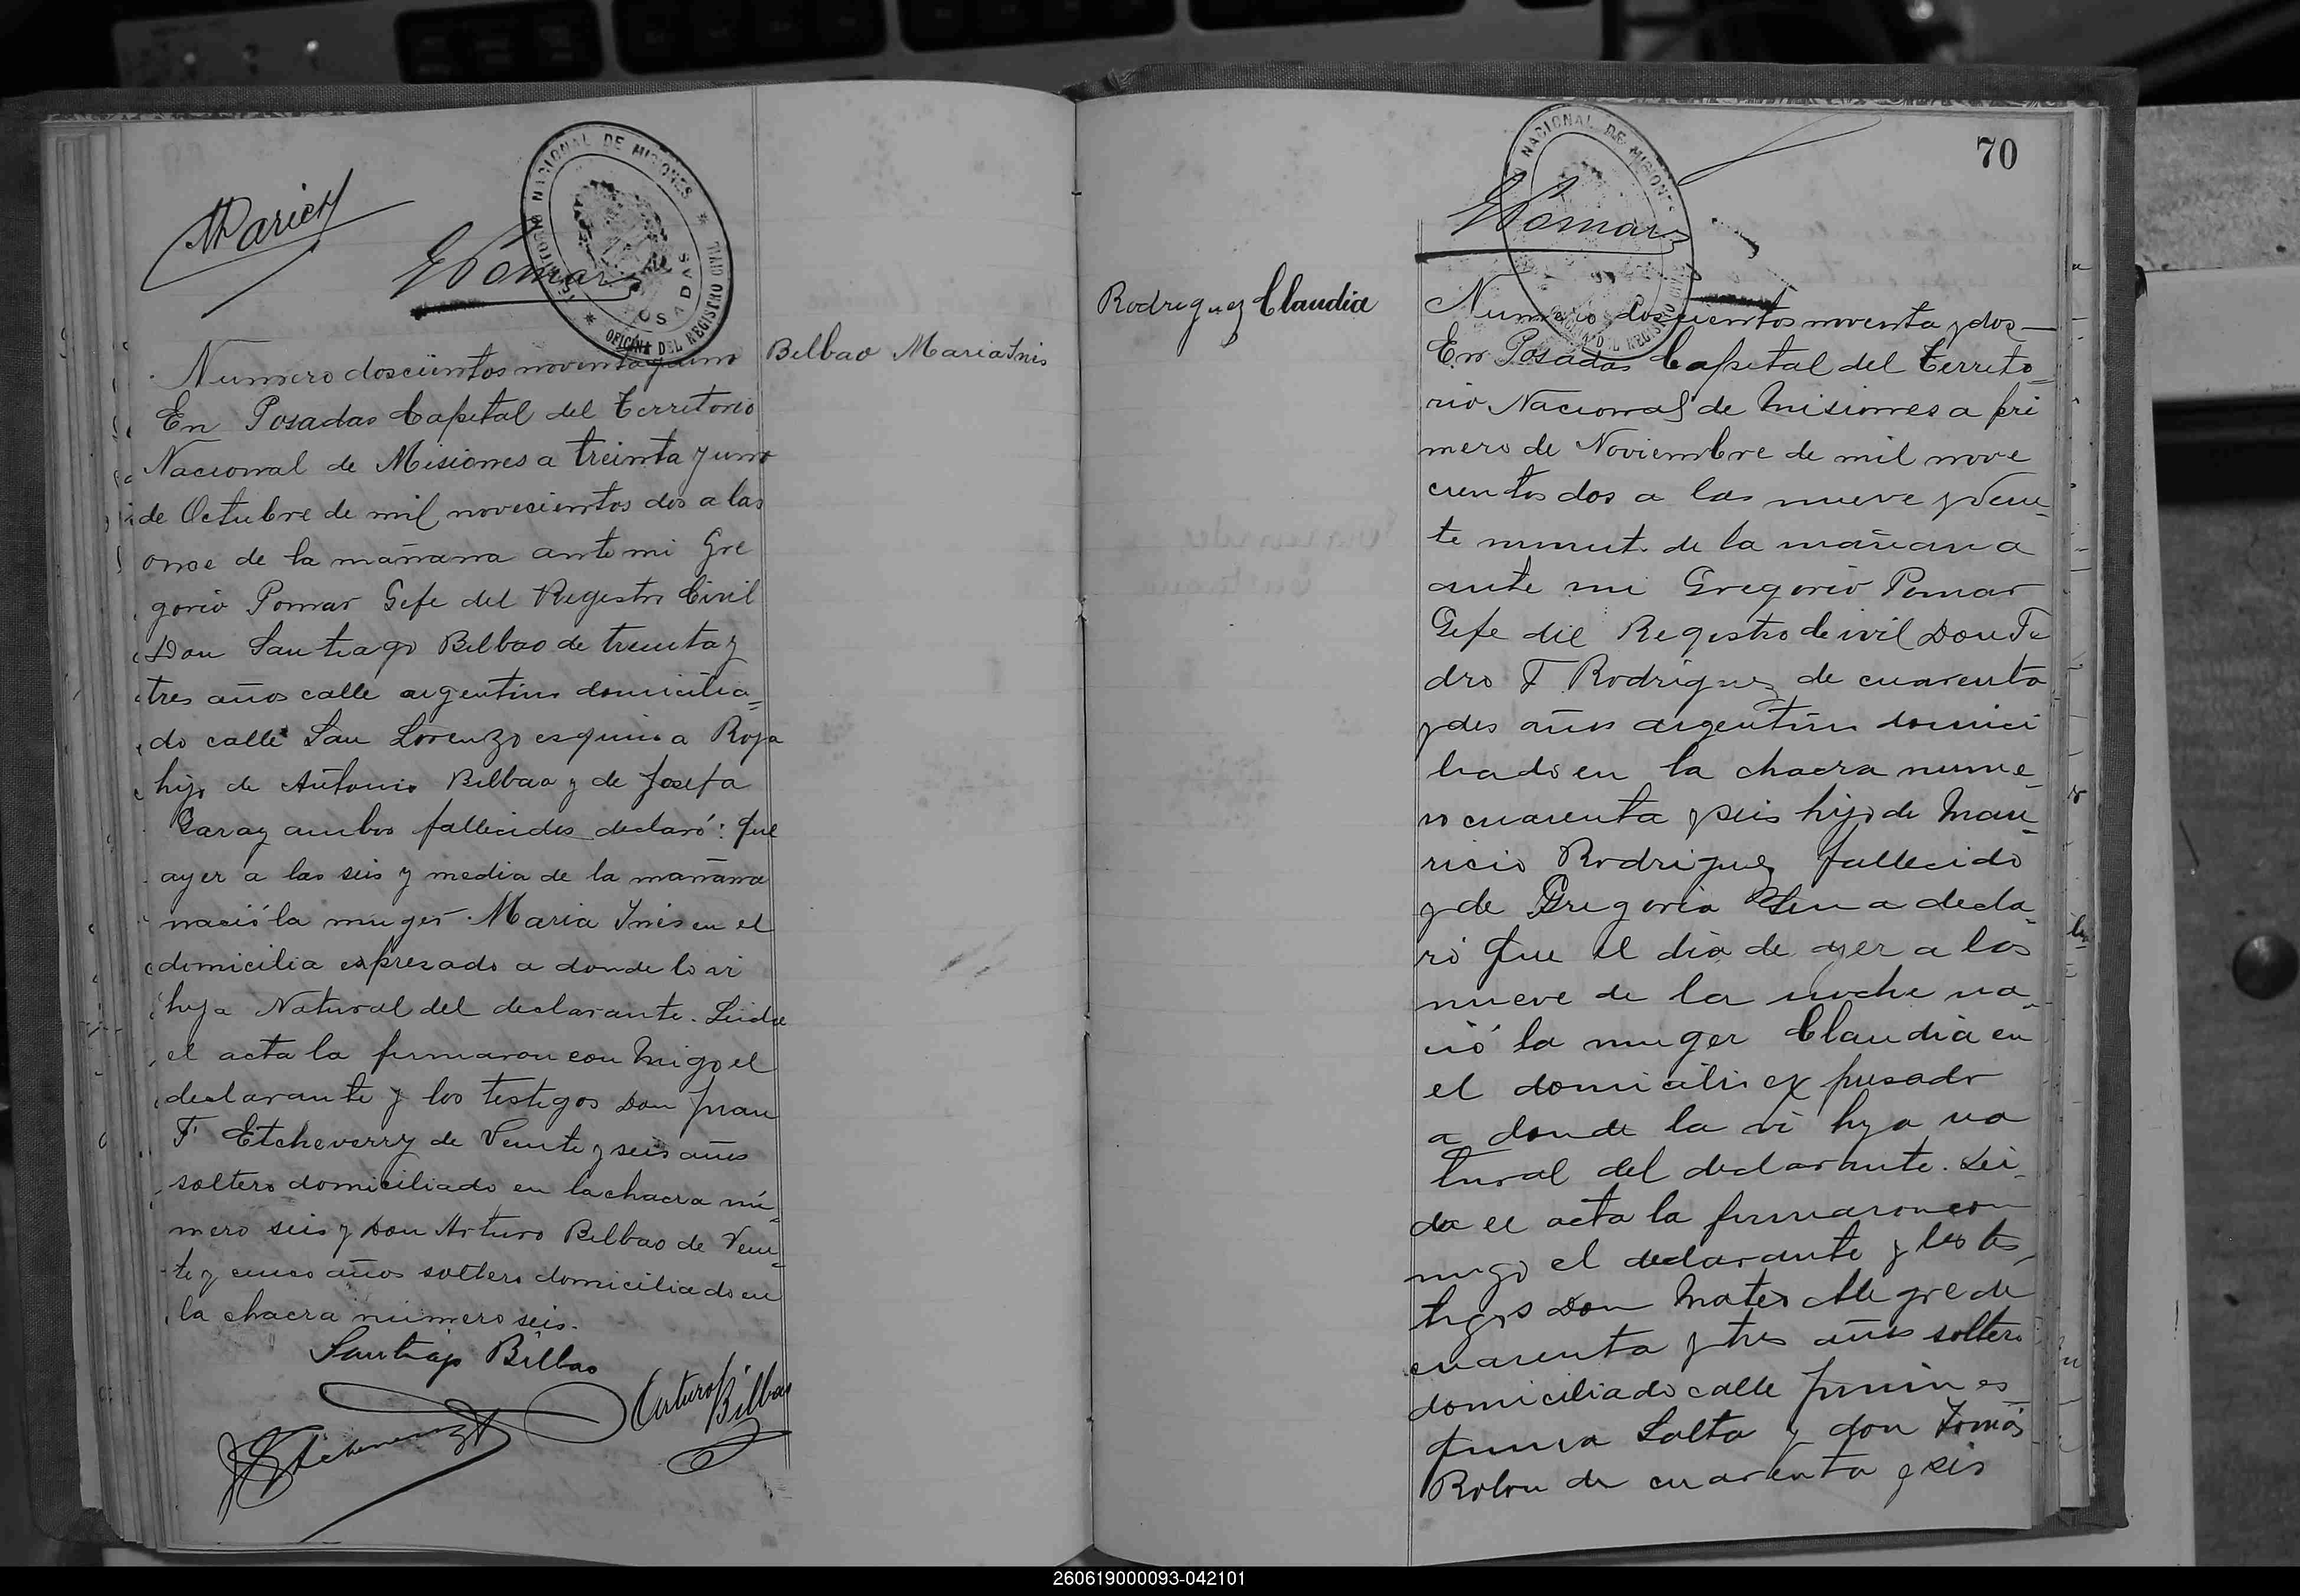 MParich
GPomar
TERRITORIO NACIONAL DE MISIONES
POSADAS
OFICINA DEL REGISTRO CIVIL
Numero doscientos noventa y uno
Bilbao Maria Inis
En Posadas Capital del Territorio
Nacional de Misiones a treinta y uno
de Octubre de mil novecientos dos a las
once de la mañana ante mi Gre
gorio Pomar Gefe del Registro Civil
Don Santiago Bilbao de treinta y
tres años calle argentino domicilia=
do calle San Lorenzo esquina Roja
hijo de Antonio Bilbao y de Josefa
Garay ambos fallecidos declaró: que
ayer a las seis y media de la mañana
nació la muger Maria Inés en el
domicilia espresado a donde lo vi
hija Natural del declarante. Leida
el acta la firmaron con migo el
declarante y los testigos Don Juan
F Etcheverry de Veinte y seis años
soltero domiciliado en la chacra nú=
mero seis y Don Arturo Bilbao de Vein=
te y cinco años soltero domiciliado en
la chacra número seis.
Santiago Bilbao
Arturo Bilbao
JFEtcheverry
70
NACIONAL DE MISIONES
GPomar
Rodriguez Claudia
Numero doscientos noventa y dos—
En Posadas Capital del Territo=
rio Nacional de Misiones a pri
mero de Noviembre de mil nove
cientos dos a las nueve y vein=
te minut. de la mañana
ante mi Gregorio Pomar
Gefe del Registro de ivil Don Pe
dro F Rodriguez de cuarenta
y dos años argentino domici
liado en la chacra nume=
ro cuarenta y seis hijo de Mau=
ricio Rodriguez fallecido
y de Gregoria decla=
ró que el dia de ayer a las
nueve de la noche na=
ció la muger Claudia en
el domicilio expresado
a donde la vi hija na
tural del declarante. Lei=
da el acta la firmaron con
migo el declarante y los tes=
tigos Don Mateo Alegre de
cuarenta y tres años soltero
domiciliado calle Junin es=
quina Salta y don Tomás
Rolon de cuarenta y seis
260619000093-042101